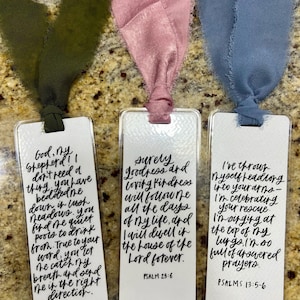 God, my
Shepherd! I
don't need a
thing. you have
bedded me
down in lush
meadows. you
find me quiet
pools to drink
from. True to your
word, you let
me catch my
breath and send
me in the right
direction.
surely
goodness and
loving kindness
will follow me
all the days
of my life, and
I will dwell in
the house of the
Lord forever.
PSALM 23:6
I've thrown
myself headlong
into your arms—
I'm celebrating
your rescue.
I'm singing at
the top of my
lungs, I'm so
full of answered
prayers.
PSALMS 13:5-6